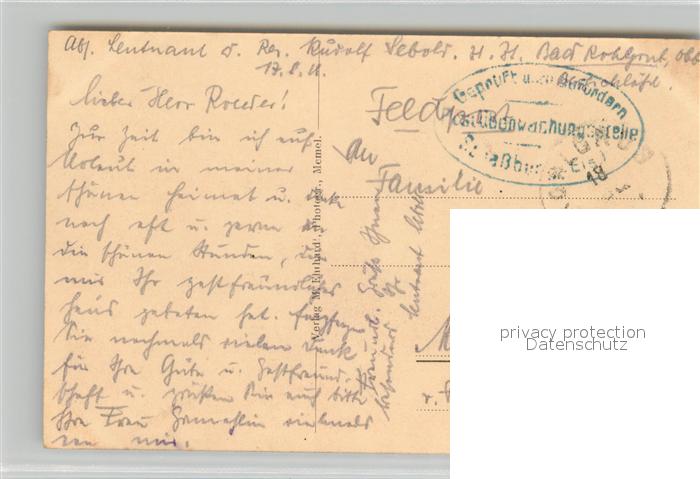 Abs. Leutnant d. Res. Rudolf Sebold. z. Zt. Bad Kohlgrub, Obb.
17.8.18.
Lieber Herr Roeder!
Zur Zeit bin ich auf
Urlaub in meiner
schönen Heimat u. denke
noch oft u. gerne an
die schönen Stunden, die
mir Ihr gastfreundliches
Haus geboten hat. Empfangen
Sie nochmals vielen Dank
für Ihre Güte u. Gastfreund-
schaft u. grüßen Sie auch bitte
Ihre Frau Gemahlin vielmals
von mir.
Freundl. Grüße Ihnen
besonders Ihr
Leutnant Sebold
Verlag M. Ehrhardt, Photogr., Memel.
Feldpost
Geprüft und zu befördern
Postüberwachungsstelle
Straßburg i. E.
18
An
Familie
privacy protection
Datenschutz